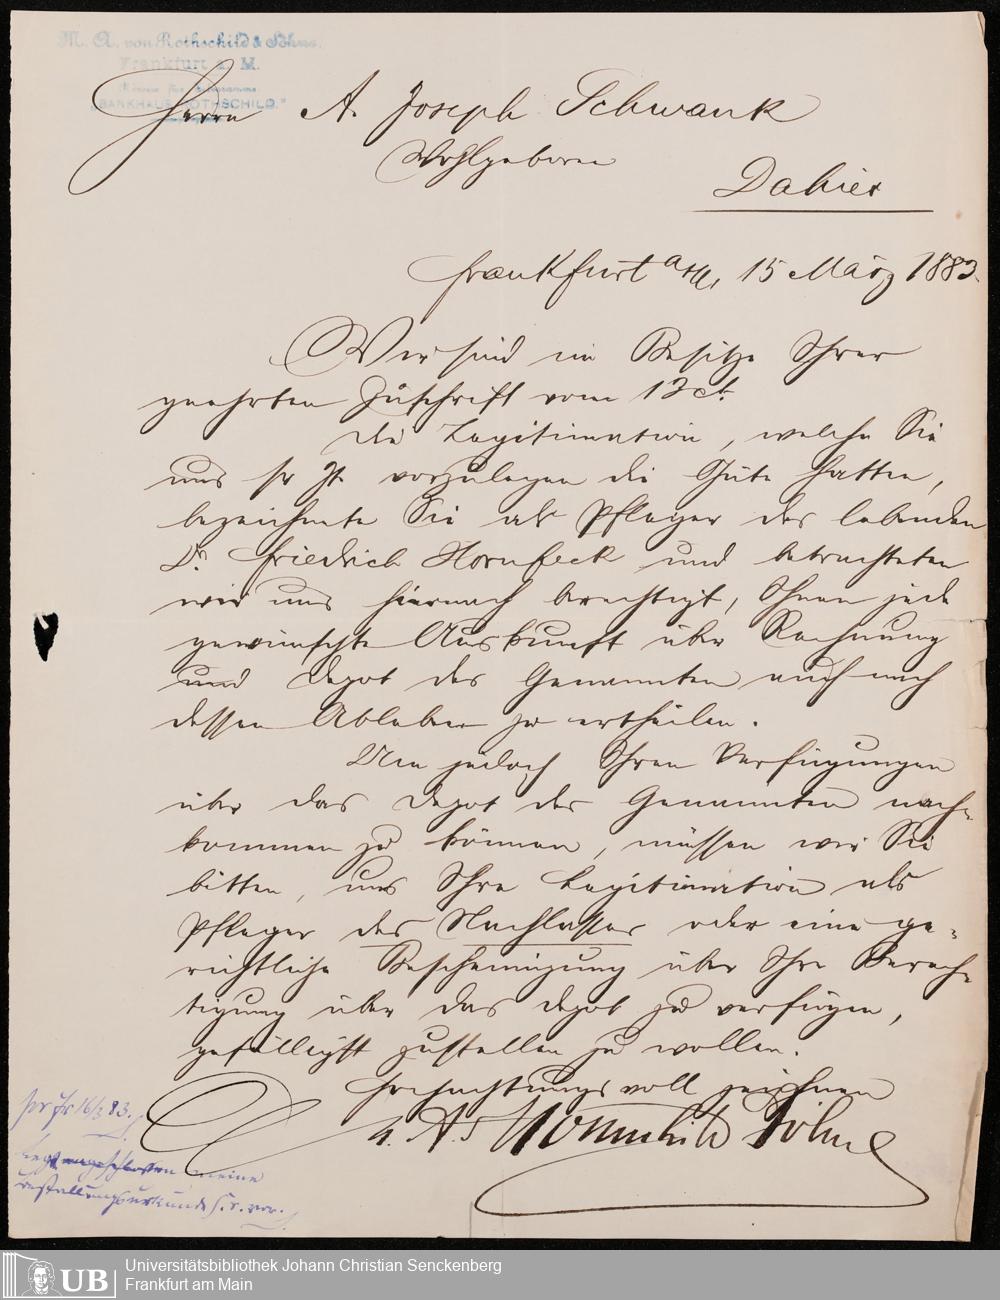 M. A. von Rothschild & Söhne.
Frankfurt a. M.
Adresse für Telegramme:
„BANKHAUS ROTHSCHILD."
Herrn A. Joseph Schwank
Wohlgeboren
Dahier
Frankfurt a/M, 15 März 1883.
Wir sind im Besitze Ihrer
geehrten Zuschrift vom 13 ct.
Die Legitimation, welche Sie
uns sr Zt. vorzulegen die Güte hatten,
bezeichnete Sie als Pfleger des lebenden
Dr. Friedrich Hornfeck und betrachteten
wir uns hiernach berechtigt, Ihnen jede
gewünschte Auskunft über Rechnung
und Depot des Genannten auch nach
dessen Ableben zu ertheilen.
Um jedoch Ihren Verfügungen
über das Depot des Genannten nach-
kommen zu können, müssen wir Sie
bitten, uns Ihre Legitimation als
Pfleger des Nachlasses oder eine ge-
richtliche Bescheinigung über Ihre Berech-
tigung über das Depot zu verfügen,
gefälligst zustellen zu wollen.
Hochachtungsvoll zeichnen
M. A. v. Rothschild Söhne
16/3 83.
meine
Bestallungsurkunde
Universitätsbibliothek Johann Christian Senckenberg
Frankfurt am Main
UB